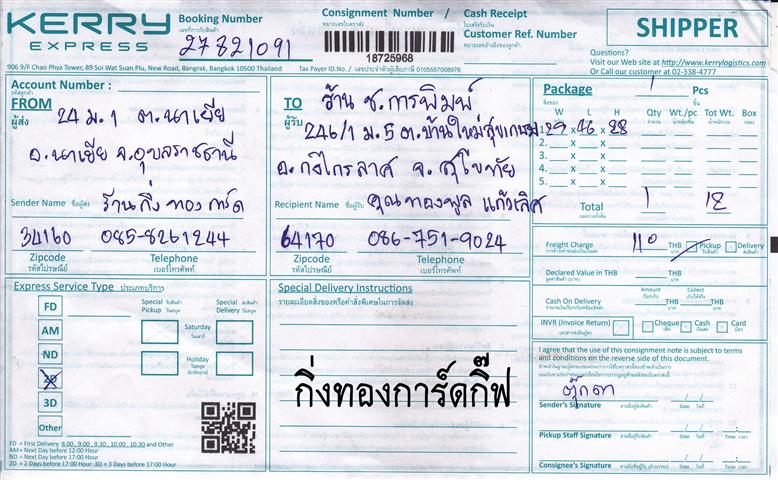 KERRY EXPRESS
Booking Number
เลขที่การรับสินค้า
27821091
Consignment Number /
หมายเลขใบตราส่ง
18725968
Cash Receipt
ใบเสร็จรับเงิน
Customer Ref. Number
หมายเลขอ้างอิงของลูกค้า
SHIPPER
Questions?
Visit our Web site at http://www.kerrylogistics.com
Or Call our customer at 02-338-4777
906 9/F Chao Phya Tower, 89 Soi Wat Suan Plu, New Road, Bangrak, Bangkok 10500 Thailand
Tax Payer ID.No. / เลขประจำตัวผู้เสียภาษี 0105557008976
Account Number :
รหัสลูกค้า
FROM
ผู้ส่ง
24 ม.1 ต.นาเยีย
อ.นาเยีย จ.อุบลราชธานี
Sender Name ชื่อผู้ส่ง
ร้านกิ่งทองการ์ด
34160 085-8261244
Zipcode
รหัสไปรษณีย์
Telephone
เบอร์โทรศัพท์
TO
ผู้รับ
ร้าน ช.การพิมพ์
246/1 ม.5 ต.บ้านใหม่สุขเกษม
อ.กงไกรลาศ จ.สุโขทัย
Recipient Name ชื่อผู้รับ
คุณทองพูล แก้วเลิศ
64170 086-751-9024
Zipcode
รหัสไปรษณีย์
Telephone
เบอร์โทรศัพท์
Package 1 Pcs
สิ่งของ ชิ้น
W L H Qty Wt./pc Tot. Wt. Box
จำนวน น้ำหนัก/ชิ้น น้ำหนักรวม กล่อง
1. x 46 x 28
2. x x
3. x x
4. x x
5. x x
Total 1 12
ยอดรวมทั้งสิ้น
Freight Charge 110 THB Pickup Delivery
Declared Value in THB THB
Cash On Delivery
Amount
Collect
THB THB
INVR (Invoice Return) Cheque Cash Card
เช็ค เงินสด บัตร
Express Service Type ประเภทบริการ
FD
AM
ND
3D
Other
Special Pickup
รับสินค้า
วันหยุด
Special Delivery
ส่งสินค้า
วันหยุด
Saturday
วันเสาร์
Holiday
วันหยุด
นักขัตฤกษ์
FD = First Delivery 8.00 , 9.00 , 9.30 , 10.00 , 10.30 and Other
AM= Next Day before 12:00 Hour
ND= Next Day before 17:00 Hour
2D = 2 Days before 17:00 Hour 3D = 3 Days before 17:00 Hour
Special Delivery Instructions
รายละเอียดสิ่งของหรือคำสั่งพิเศษในการจัดส่ง
กิ่งทองการ์ดกิ๊ฟ
I agree that the use of this consignment note is subject to terms
and conditions on the reverse side of this document.
ตุ๊กตา
Sender's Signature ลายมือชื่อผู้ส่งสินค้า Date / วันที่
Pickup Staff Signature Date / วันที่ Time เวลา
Consignee's Signature Date / วันที่ Time เวลา